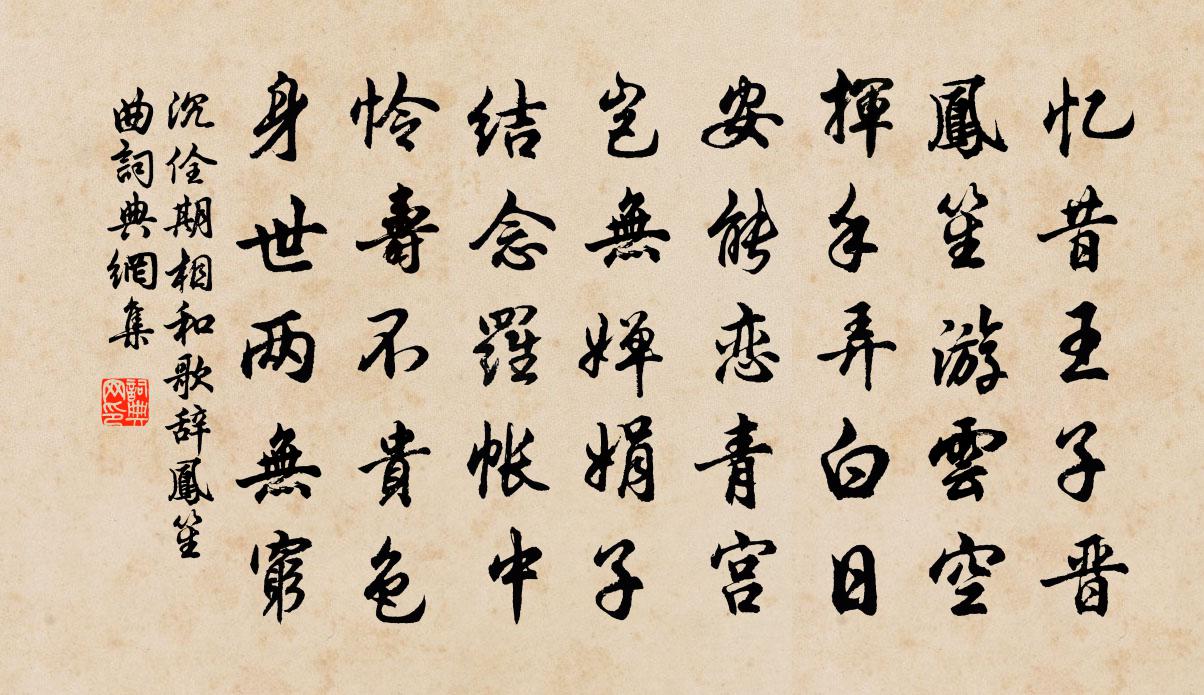 忆昔王子晋
鳳笙游雲空
揮手弄白日
安能恋青宫
岂無婵娟子
结念羅帐中
怜壽不貴色
身世两無窮
沉佺期相和歌辞鳳笙
曲詞典網集
詞典
网印